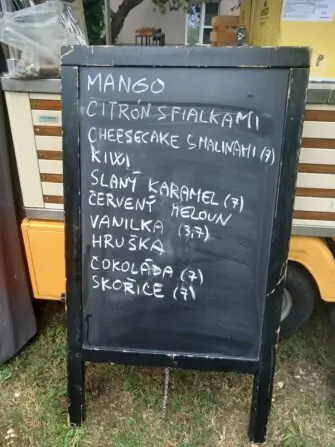 MANGO
CITRÓN S FIALKAMI
CHEESECAKE S MALINAMI (7)
KIWI
SLANÝ KARAMEL (7)
ČERVENÝ MELOUN
VANILKA (3,7)
HRUŠKA
ČOKOLÁDA (7)
SKOŘICE (7)